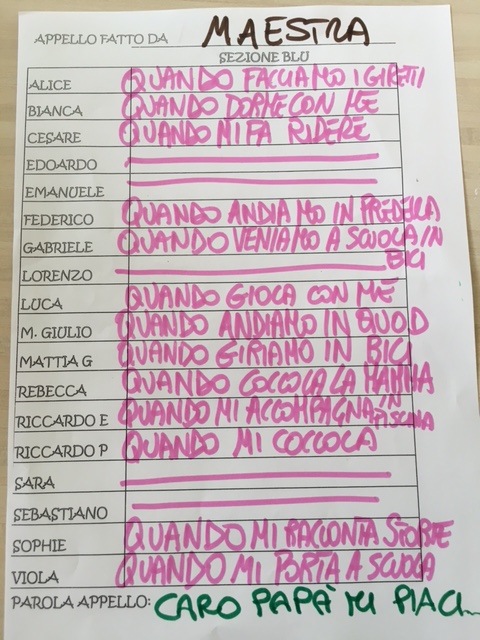 APPELLO FATTO DA MAESTRA
SEZIONE BLU
ALICE QUANDO FACCIAMO I GIRETTI
BIANCA QUANDO DORME CON ME
CESARE QUANDO MI FA RIDERE
EDOARDO
EMANUELE
FEDERICO QUANDO ANDIAMO IN PREDEILA
GABRIELE QUANDO VENIAMO A SCUOLA IN BICI
LORENZO
LUCA QUANDO GIOCA CON ME
M. GIULIO QUANDO ANDIAMO IN QUOD
MATTIA G QUANDO GIRIAMO IN BICI
REBECCA QUANDO COCCOLA LA MAMMA
RICCARDO E QUANDO MI ACCOMPAGNA IN PISCINA
RICCARDO P QUANDO MI COCCOLA
SARA
SEBASTIANO
SOPHIE QUANDO MI RACCONTA STORIE
VIOLA QUANDO MI PORTA A SCUOLA
PAROLA APPELLO: CARO PAPÀ MI PIACI...